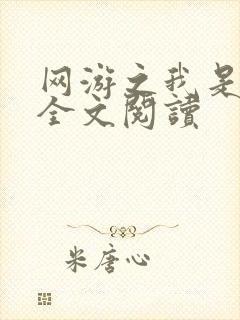 网游之我是
全文閱讀
米唐心